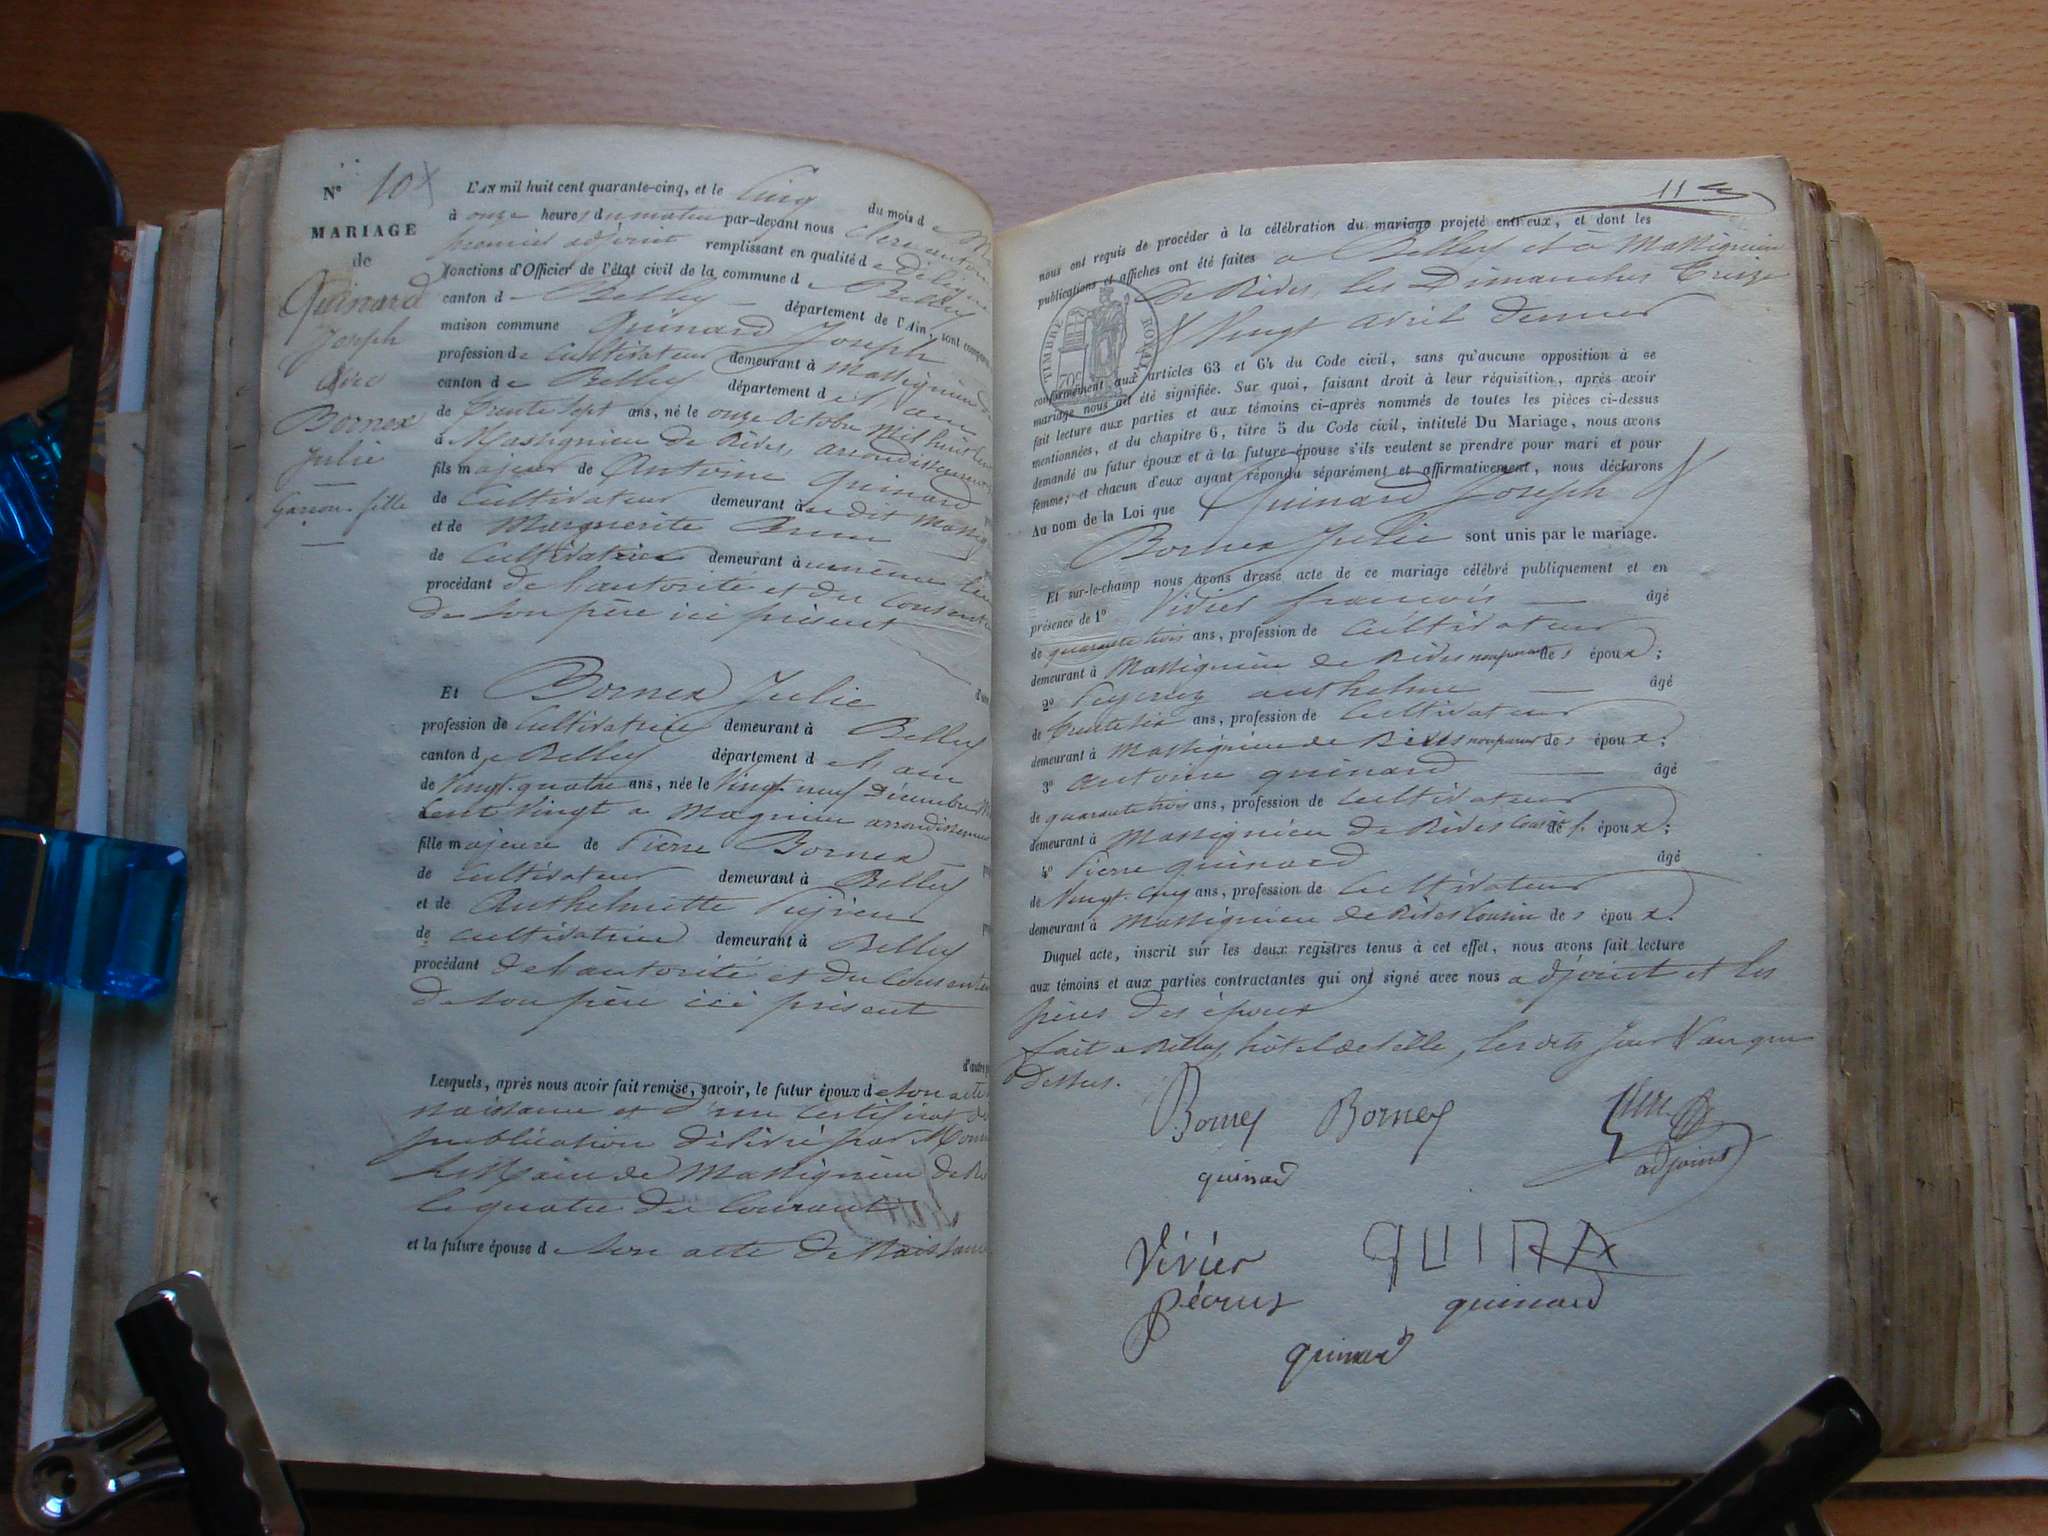 N° 10
MARIAGE
de
Quinard
Joseph
avec
Bornex
Julie
Garçon. fille
L'AN mil huit cent quarante-cinq, et le Cinq du mois d
à onze heures du matin par-devant nous Clerc antoine
premier adjoint remplissant en qualité de délégué
fonctions d'Officier de l'état civil de la commune de Belley
canton de Belley département de l'Ain, sont comparus
maison commune Quinard Joseph
profession de Cultivateur demeurant à Massignieu de
canton de Belley département de l'ain
de trente sept ans, né le onze Octobre Mil huit Cent
à Massignieu de Rives, arrondissement
fils majeur de Antoine Quinard
de Cultivateur demeurant audit Massig
et de Marguerite
de Cultivatrice demeurant au même lieu
procédant de l'autorité et du Consente
de son père ici présent
Et Bornex Julie d'une
profession de Cultivatrice demeurant à Belley
canton de Belley département de l'ain
de Vingt-quatre ans, née le Vingt neuf Décembre Mil
Cent Vingt a Magnieu arrondissement
fille majeure de Pierre Bornex
de Cultivateur demeurant à Belley
et de Anthelmette
de Cultivatrice demeurant à Belley
procédant de l'autorité et du Consente
de son père ici présent
d'autre p
Lesquels, après nous avoir fait remise, savoir, le futur époux de son acte
naissance et d'un Certificat de
publication délivré par Mons
le Maire de Massignieu de Ri
le quatre du Courant
et la future épouse de son acte de Naissance
11
nous ont requis de procéder à la célébration du mariage projeté entr'eux, et dont les
publications et affiches ont été faites a Belley et à Massignieu
de Rives, les Dimanches treize
& Vingt avril dernier
TIMBRE ROYAL
conformément aux articles 63 et 64 du Code civil, sans qu'aucune opposition à ce
mariage nous ait été signifiée. Sur quoi, faisant droit à leur réquisition, après avoir
fait lecture aux parties et aux témoins ci-après nommés de toutes les pièces ci-dessus
mentionnées, et du chapitre 6, titre 5 du Code civil, intitulé Du Mariage, nous avons
demandé au futur époux et à la future épouse s'ils veulent se prendre pour mari et pour
femme; et chacun d'eux ayant répondu séparément et affirmativement, nous déclarons
Au nom de la Loi que Quinard Joseph &
Bornex Julie sont unis par le mariage.
Et sur-le-champ nous avons dressé acte de ce mariage célébré publiquement et en
présence de 1° Vivier françois âgé
de quarante trois ans, profession de Cultivateur
demeurant à Massignieu de Rives non parent des époux;
2° anthelme âgé
de trente six ans, profession de Cultivateur
demeurant à Massignieu de Rives non parent des époux;
3° antoine quinard âgé
de quarante trois ans, profession de Cultivateur
demeurant à Massignieu de Rives Cousin de l' époux;
4° Pierre quinard âgé
de Vingt-cinq ans, profession de Cultivateur
demeurant à Massignieu de Rives Cousin des époux.
Duquel acte, inscrit sur les deux registres tenus à cet effet, nous avons fait lecture
aux témoins et aux parties contractantes qui ont signé avec nous adjoint et les
pères des époux
fait a Belley, hôtel de Ville, les dits jour & an que
Dessus.
Borney Borney
adjoint
quinard
Vivier QUINA
pécrus quinard
quinard